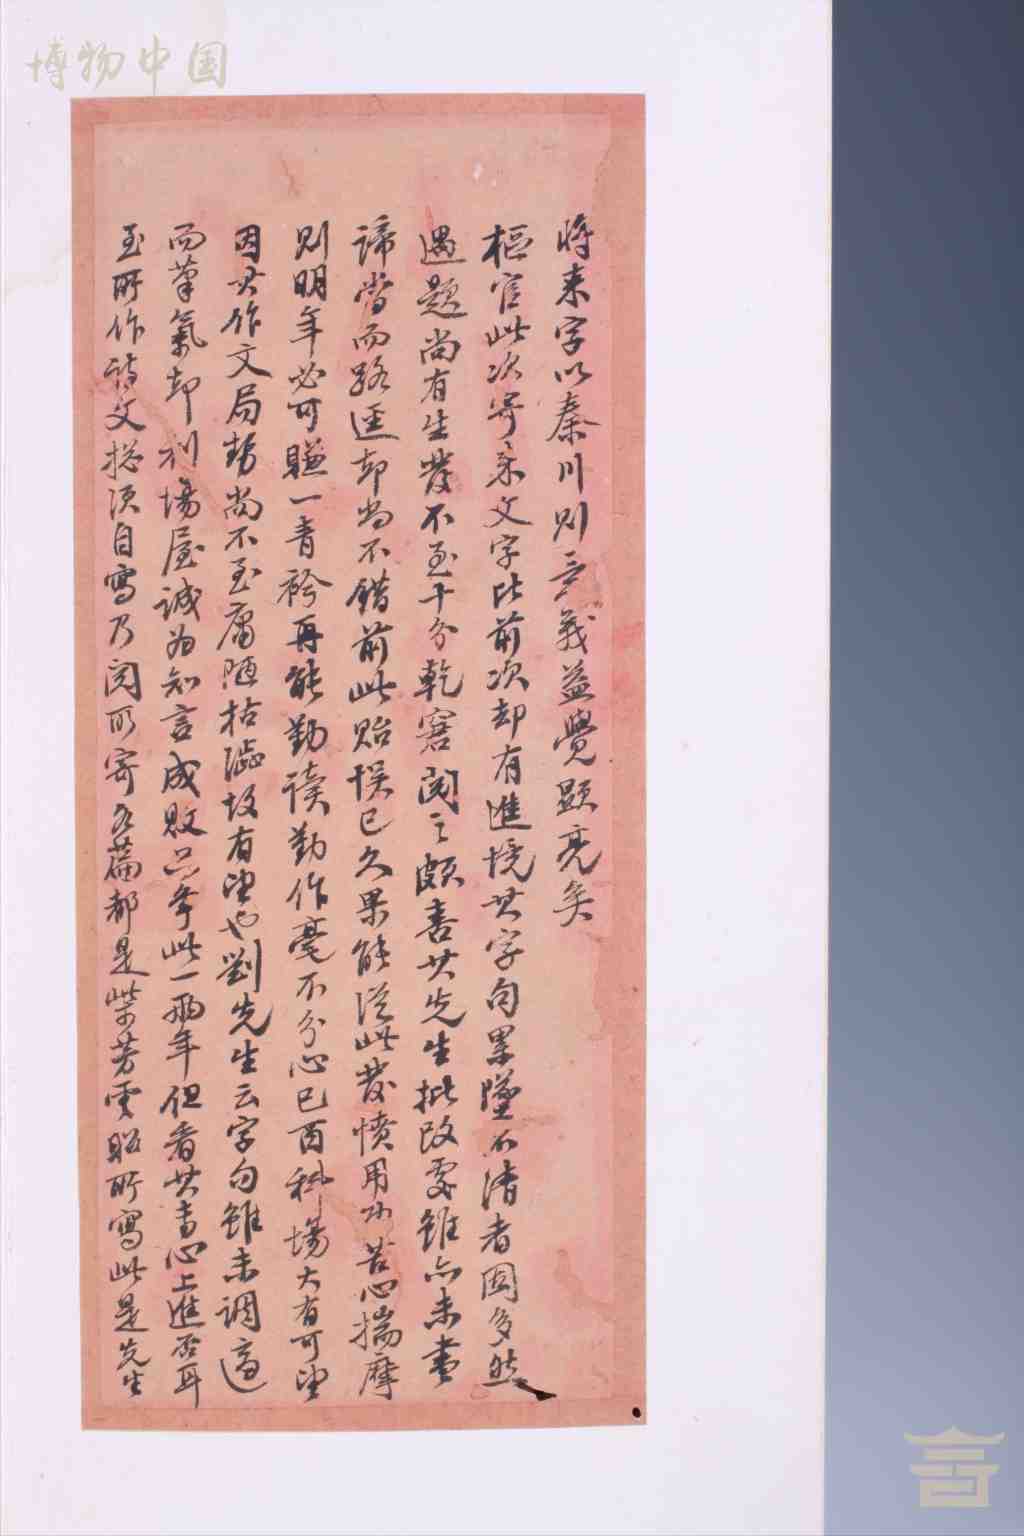 博物中国
将来字以秦川则意义益觉显亮矣
枢官此次寄来文字比前次却有進境其字句累墜不清者固多然
遇题尚有生發不至十分乾窘阅之颇喜其先生批改處雖亦未盡
谛當而路逕却尚不错前此贻悮已久果能從此發愤用功苦心揣摩
则明年必可賺一青衿再能勤读勤作毫不分心己酉科場大有可望
因其作文局势尚不至庸陋枯澁故有望也劉先生云字句雖未調適
而筆氣却利場屋诚为知言成败只争此一两年但看其专心上進否耳
至所作诗文摠须自寫乃阅所寄各篇都是柴芳雯眧所寫此是先生